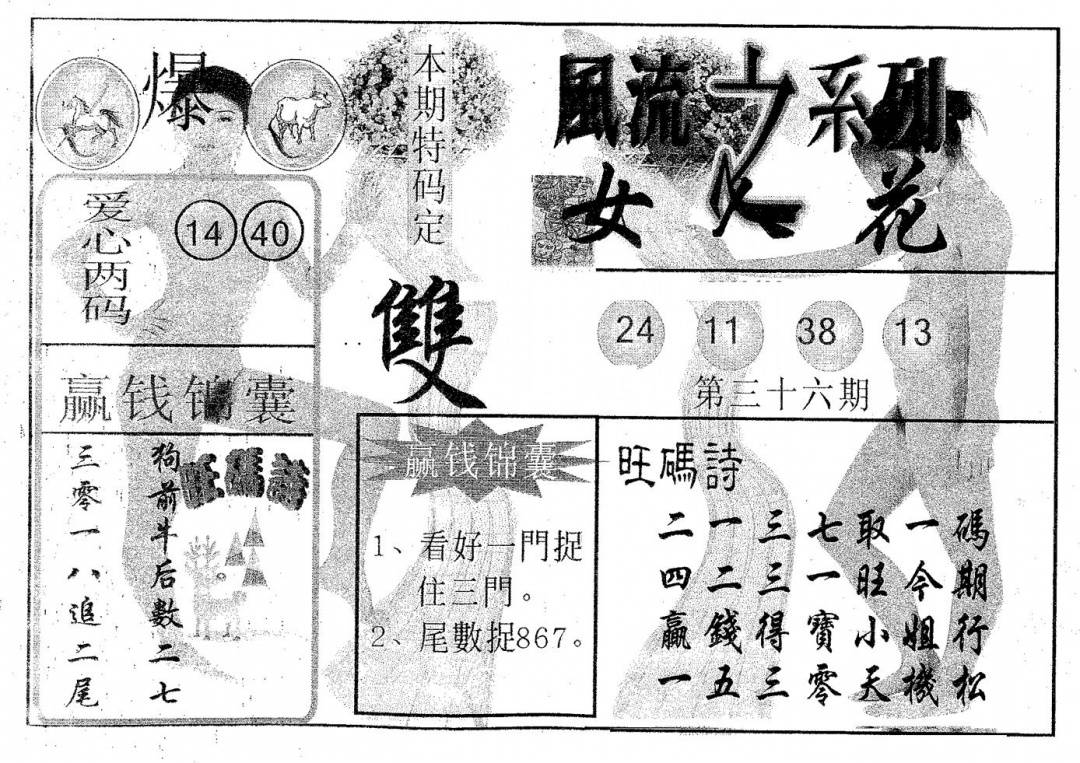 爆
爱心两码
14 40
赢钱锦囊
狗前牛后數二七
三零一八追二尾
旺碼詩
本期特码定
雙
風流之系列
女人花
24 11 38 13
第三十六期
赢钱锦囊
1、看好一門捉
住三門。
2、尾數捉867。
旺碼詩
二一三七取一碼
四二三一旺今期
贏錢得寶小姐行
一五三零天機松